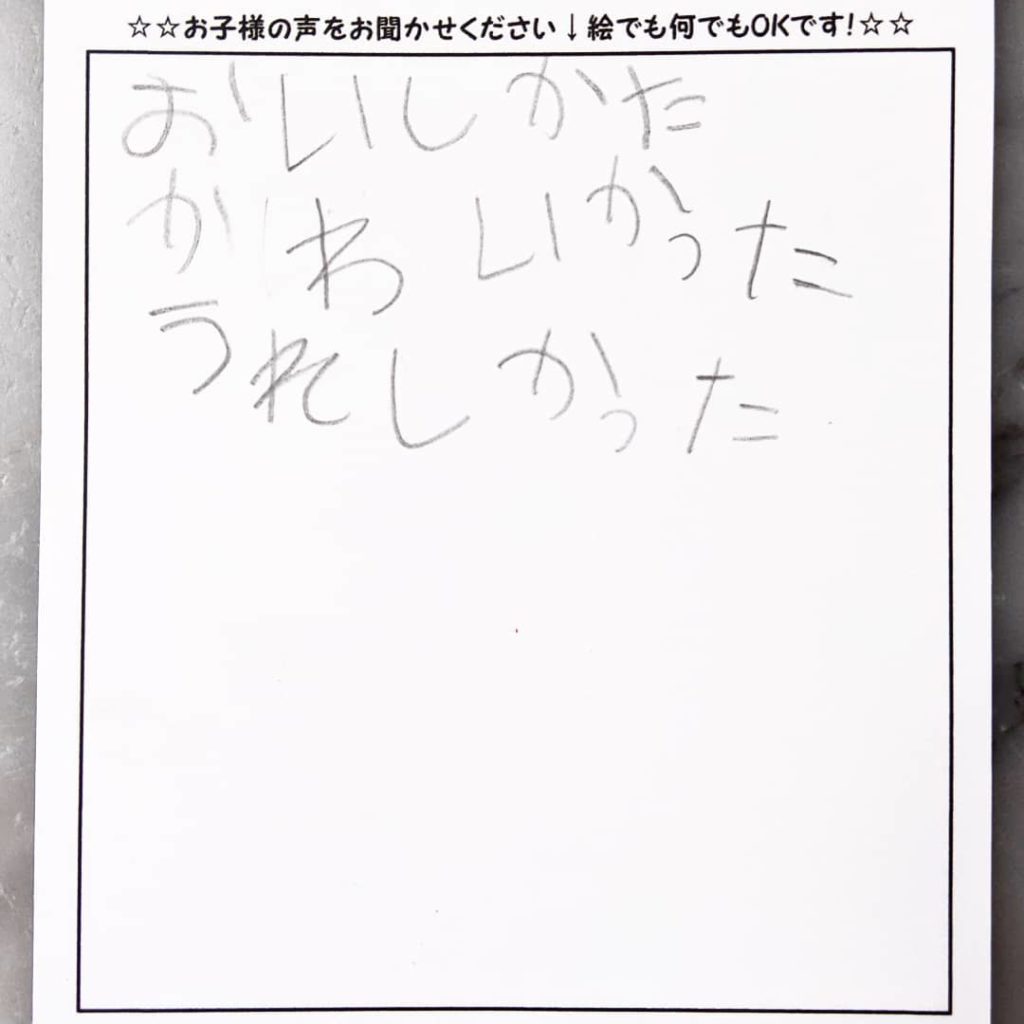 ☆☆お子様の声をお聞かせください↓絵でも何でもOKです!☆☆
おいしかた
かわいかった
うれしかった